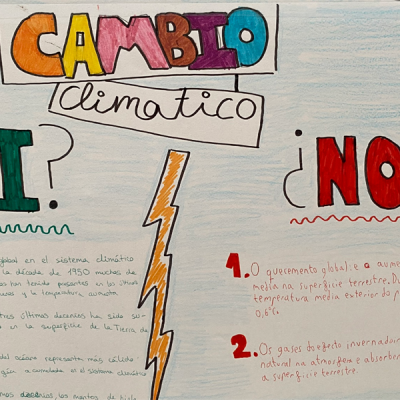 CAMBIO
climatico
I?
¿NO
global en el sistema climático
la década de 1950 muchos de
han tenido presentes en los últimos
y la temperatura aumenta
tres últimos decenios ha sido su-
en la superficie de la Tierra de
del océano representa más cálido
acumulada en el sistema climático
los mantos de hielo
1. O quecemento global, e o aume
media na superficie terrestre. Du
temperatura media exterior do p
0,6°c.
2. Os gases do efecto invernadoir
natural na atmosfera e absorben
a superficie terrestre.